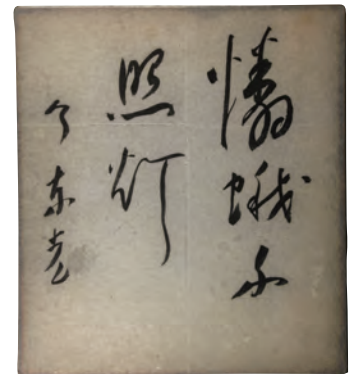 憐蛾不
照灯
今東光